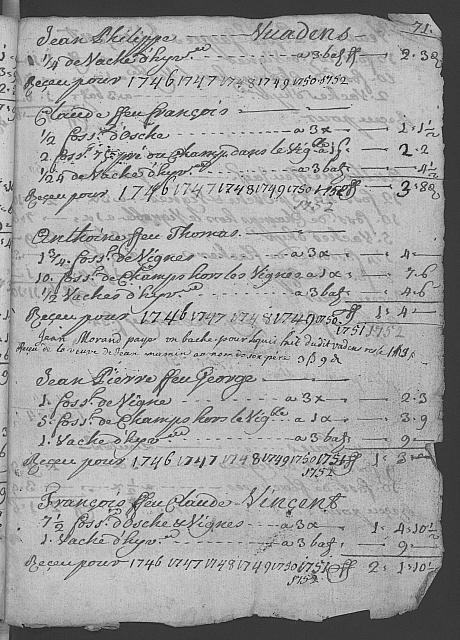 71.
Jean Philippe Vuadens
1/4 de Vache d'hyv. a 3 baſ 2 - 3
Reçeu pour 1746 1747 1748 1749 1750 1752
Claude ffeu François
1/2 foss. d'osche a 3 x 1 - 1/2
2 foss. pré ou Champ dans le Vig a 1 2 - 2
de Vache d'hyv. a 3 baſ 4 1/2
Reçeu pour 1746 1747 1748 1749 1750 1751 3 - 8
1752
Anthoine ffeu Thomas
1 3/4 foss. de Vignes a 3 x 4
10. foss. de Champs hors les Vignes a 1 x 7 - 6
1/2 Vaches d'hyv. a 3 baſ 4 - 6
Reçeu pour 1746 1747 1748 1749 1750 1 - 4
1751 1752
Jean Morand payer un bache pour huit dudit vaden reste
de la veuve de Jean au nom de son père 3 ß 9
Jean Pierre ffeu George
1. foss. de Vigne a 3 x 2 - 3
5. foss. de Champs hors le Vig a 1 x 3 - 9
1. Vache d'hyv. a 3 baſ 9
Reçeu pour 1746 1747 1748 1749 1750 1751 1 - 3
1752
François ffeu Claude Vincent
7 1/2 foss. d'osche & Vignes a 3 x 1 - 4 - 10 1/2
1. Vache d'hyv. a 3 baſ 9
Reçeu pour 1746 1747 1748 1749 1750 1751 2 - 1 - 10 1/2
1752